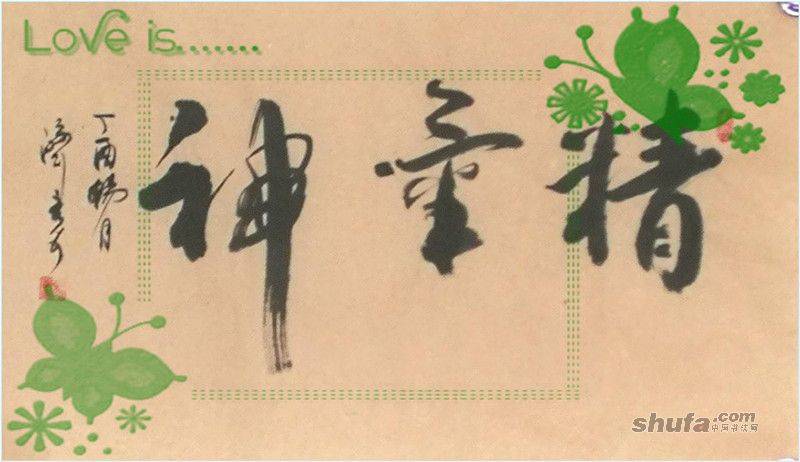 Love is.......
精氣神
丁酉暢月
shufa.com
中国书法网